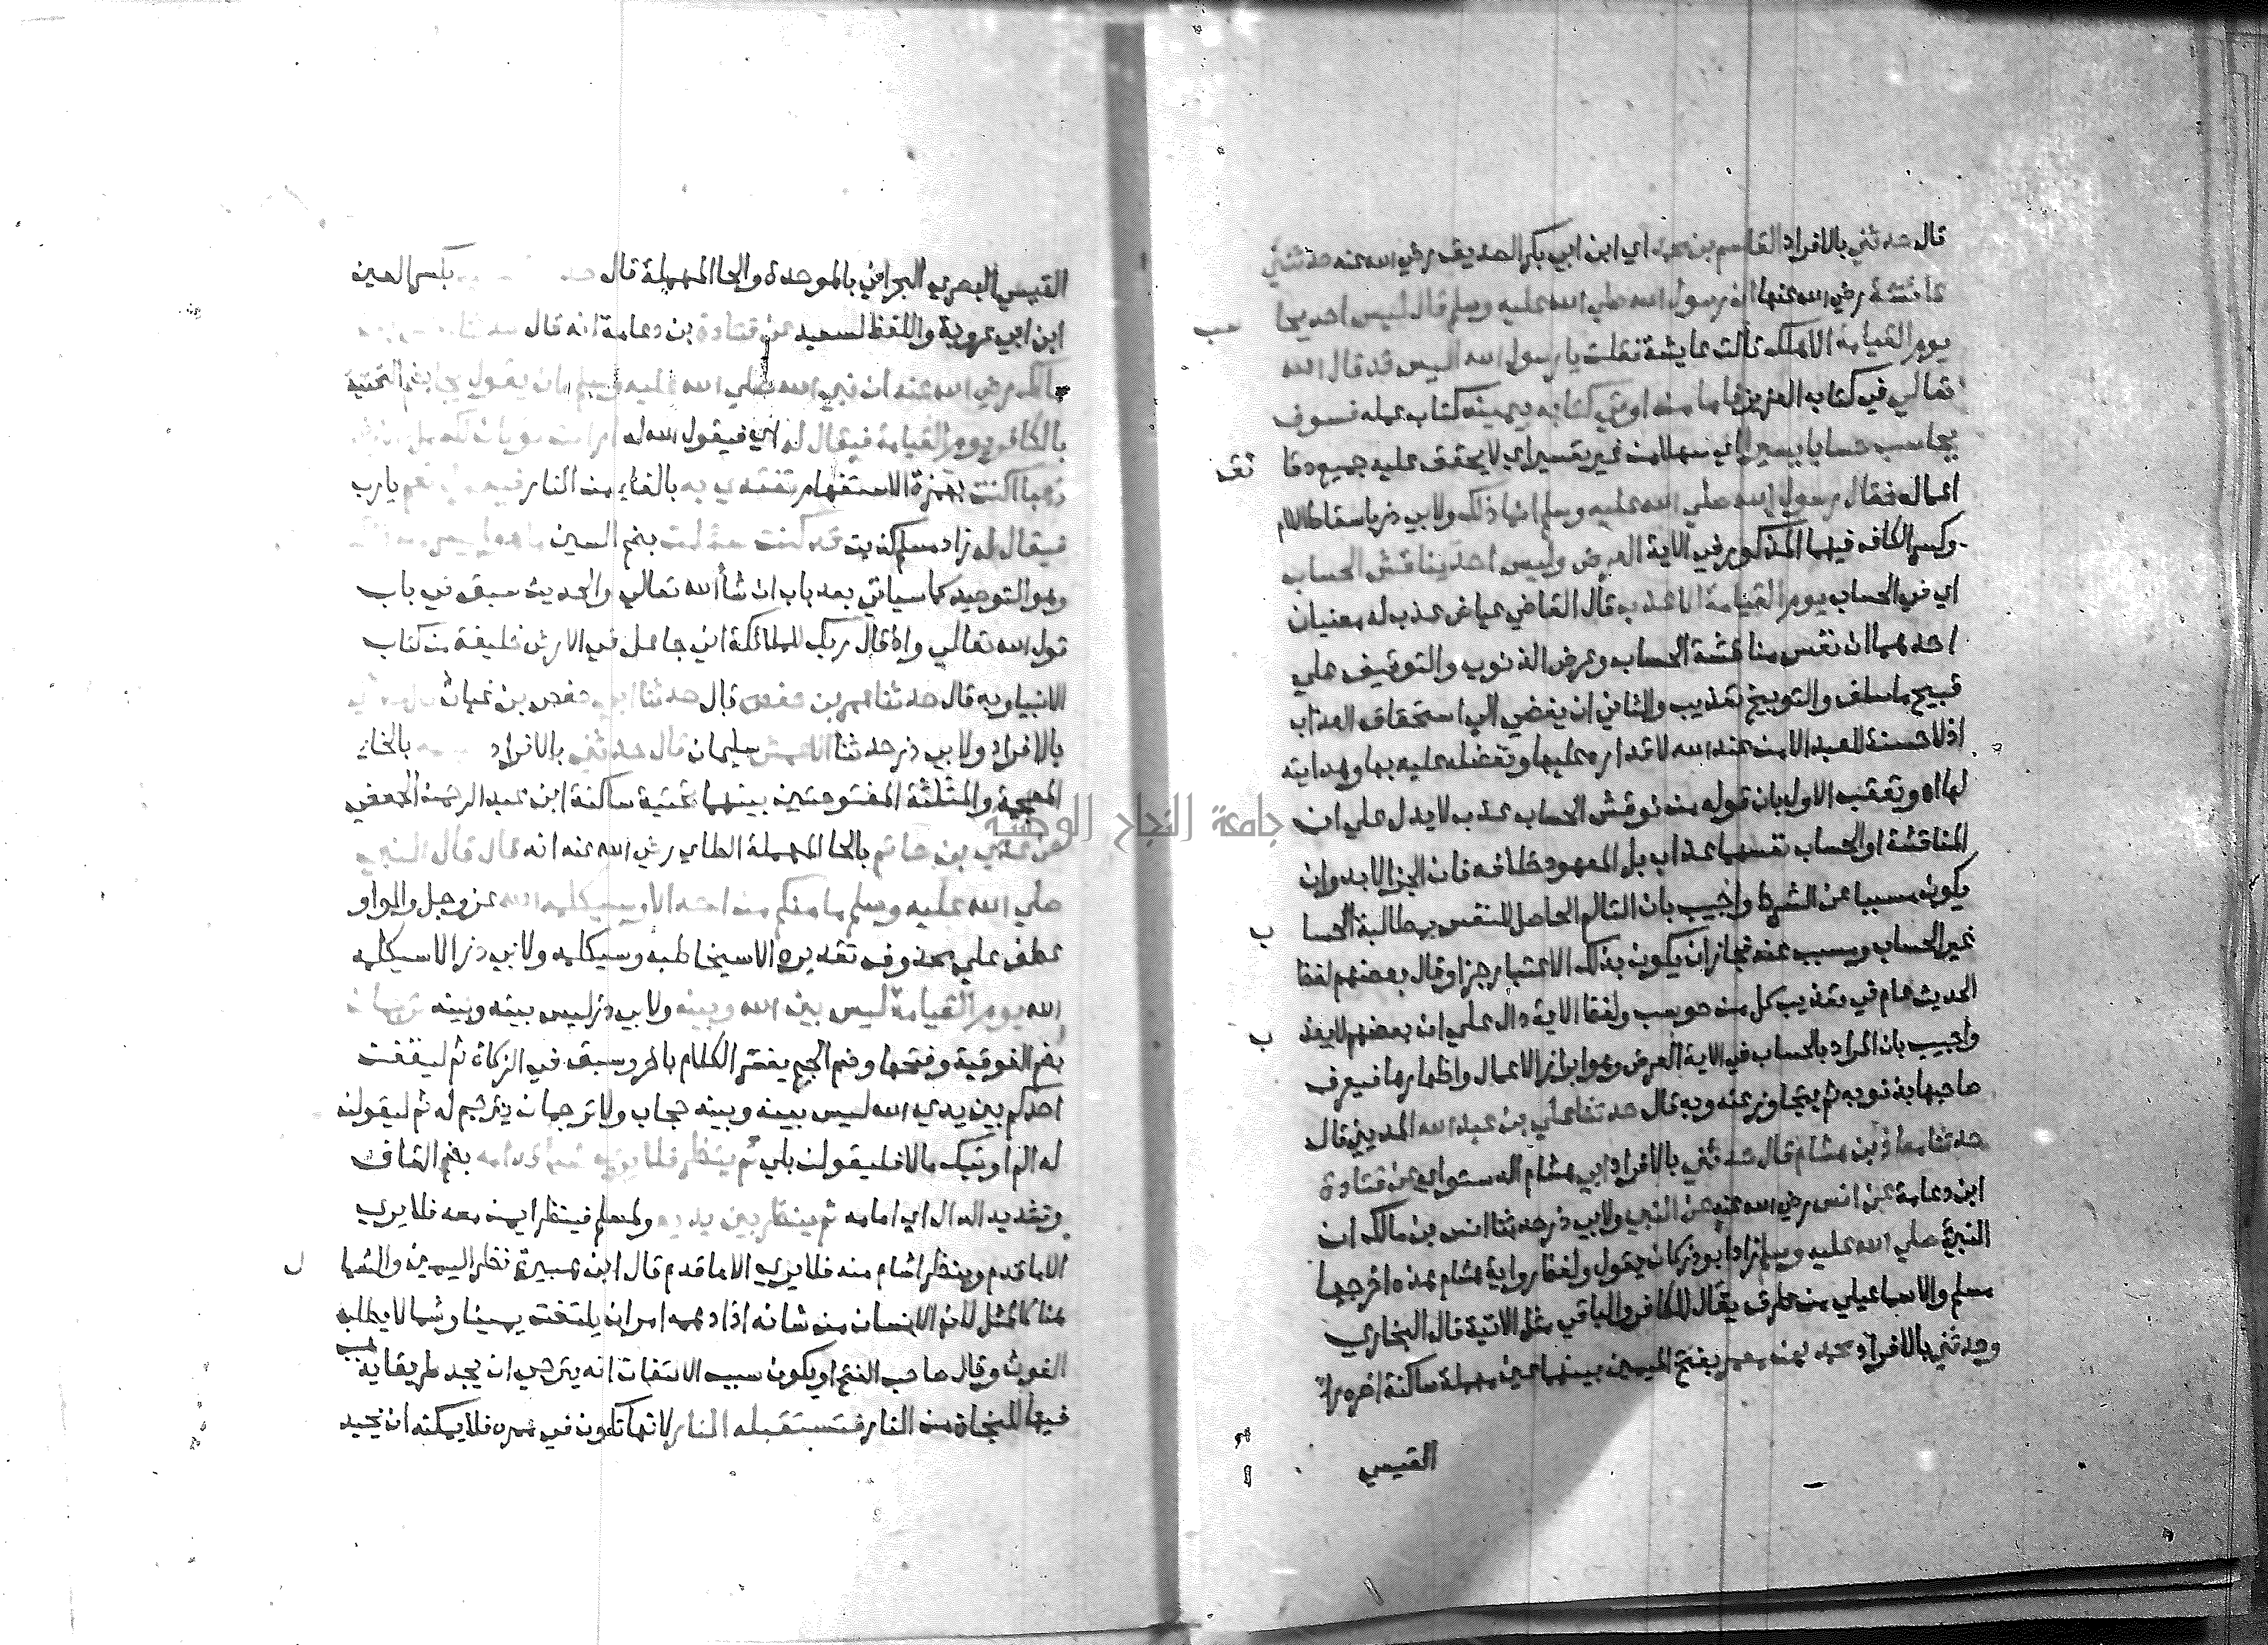 قال حدثني بالافراد القاسم بن محمد اي ابن ابي بكر الصديق رضي الله عنه حدثتني
عائشة رضي الله عنها ان رسول الله صلي الله عليه وسلم قال ليس احد يحا سب
يوم القيامة الا هلك قالت عايشة فقلت يا رسول الله اليس قد قال الله
تعالي في كتابه العزيز فاما من اوتي كتابه بيمينه كتاب عمله فسوف
يحاسب حسابا يسيرا اي سهلا من غير تعسير اي لا يحقق عليه جميع دقا ئق
اعماله فقال رسول الله صلي الله عليه وسلم انما ذلك ولابي ذر باسقاط اللام
وكسر الكاف فيهما المذكور في الاية العرض وليس احد يناقش الحساب
اي في الحساب يوم القيامة الا عذب قال القاضي عياض عذب له معنيان
احدهما ان نفس مناقشة الحساب وعرض الذنوب والتوقيف علي
قبيح ما سلف والتوبيخ تعذيب والثاني ان يفضي الي استحقاق العذاب
اذ لا حسنة للعبد الا من عند الله لاقداره عليها وتفضله عليه بها وهدايته
لها اه وتعقب الاول بان قوله من نوقش الحساب عذب لا يدل علي ان
المناقشة او الحساب نفسهما عذاب بل المعهود خلافه فان الجزا لابد وان
يكون مسببا عن الشرط واجيب بان التالم الحاصل للنفس بمطالبة الحسا ب
غير الحساب ومسبب عنه فجاز ان يكون بذلك الاعتبار جزا وقال بعضهم لفظ
الحديث عام في تعذيب كل من حوسب ولفظ الاية دال علي ان بعضهم لا يعذ ب
واجيب بان المراد بالحساب في الاية العرض وهو ابراز الاعمال واظهارها فيعرف
صاحبها بذنوبه ثم يتجاوز عنه وبه قال حدثنا علي بن عبد الله المديني قال
حدثنا معاذ بن هشام قال حدثني بالافراد ابي هشام الدستواي عن قتادة
ابن دعامة عن انس رضي الله عنه عن النبي ولابي ذر حدثنا انس بن مالك ان
النبي صلي الله عليه وسلم زاد ابو ذر كان يقول ولفظ رواية هشام هذه اخرجها
مسلم والاسماعيلي من طرق يقال للكافر والباقي مثل الاتية قال البخاري
وحدثني بالافراد محمد بن معمر بفتح الميمين بينهما عين مهملة ساكنة اخره را
القيسي
القيسي البصري البحراني بالموحدة والحا المهملة قال بكسر العين
ابن ابي عروبة واللفظ لسعيد عن قتادة بن دعامة انه قال
مالك رضي الله عنه ان نبي الله صلي الله عليه وسلم كان يقول يجا بضم التحتية
بالكافر يوم القيامة فيقال له اي فيقول الله له
ذهبا اكنت بهمزة الاستفهام تفتدي به بالفاء من النار نعم يارب
فيقال له زاد مسلم كذبت قد كنت سئلت بضم السين
وهو التوحيد كما سياتي بعد باب ان شا الله تعالي والحديث سبق في باب
قول الله تعالي واذ قال ربك للملائكة اني جاعل في الارض خليفة من كتاب
الانبيا وبه قال حدثنا عمر بن حفص قال حدثنا ابي حفص بن غياث
بالافراد ولابي ذر حدثنا الاعمش سليمان قال حدثني بالافراد بالخاء
المعجمة والمثلثة المفتوحتين بينهما تحتية ساكنة ابن عبد الرحمن الجعفي
عن عدي بن حاتم بالحا المهملة الطاي رضي الله عنه انه قال قال النبي
صلي الله عليه وسلم ما منكم من احد الا وسيكلمه الله عز وجل والواو
عطف علي محذوف تقديره الا سيخاطبه وسيكلمه ولابي ذر الا سيكلمه
الله يوم القيامة ليس بين الله وبينه ولابي ذر ليس بينه وبينه
بضم الفوقية وفتحها وضم الجيم يفسر الكلام باخر وسبق في الزكاة ثم ليقفن
احدكم بين يدي الله ليس بينه وبينه حجاب ولا ترجمان يترجم له ثم ليقولن
له الم اوتيك مالا فليقولن بلي ثم ينظر فلا يري شيا قدامه بضم القاف
وتشديد الدال اي امامه ثم ينظر بين يديه ولمسلم فينظر ايمن منه فلا يري
الا ما قدم وينظر اشام منه فلا يري الا ما قدم قال ابن هبيرة نظر اليمين والشما ل
هنا كالمثل لان الانسان من شانه اذا دهمه امر ان يلتفت يمينا وشمالا يطلب
الغوث وقال صاحب الفتح او يكون سبب الالتفات انه يترجي ان يجد طريقا يذ هب
فيها للنجاة من النار فتستقبله النار لانها تكون في ممره فلا يمكنه ان يحيد
جامعة النجاح الوطنية